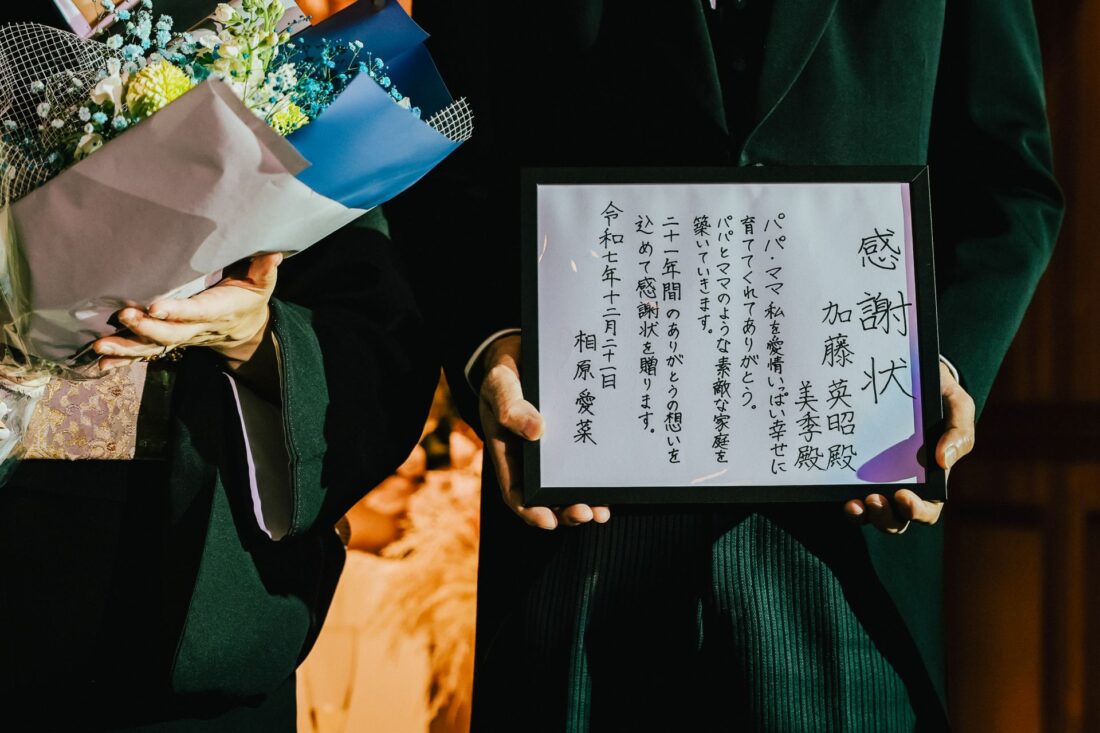 感謝状
加藤 英昭殿
美季殿
パパ・ママ 私を愛情いっぱい幸せに
育ててくれてありがとう。
パパとママのような素敵な家庭を
築いていきます。
二十一年間のありがとうの想いを
込めて感謝状を贈ります。
令和七年十二月二十一日
相原愛菜